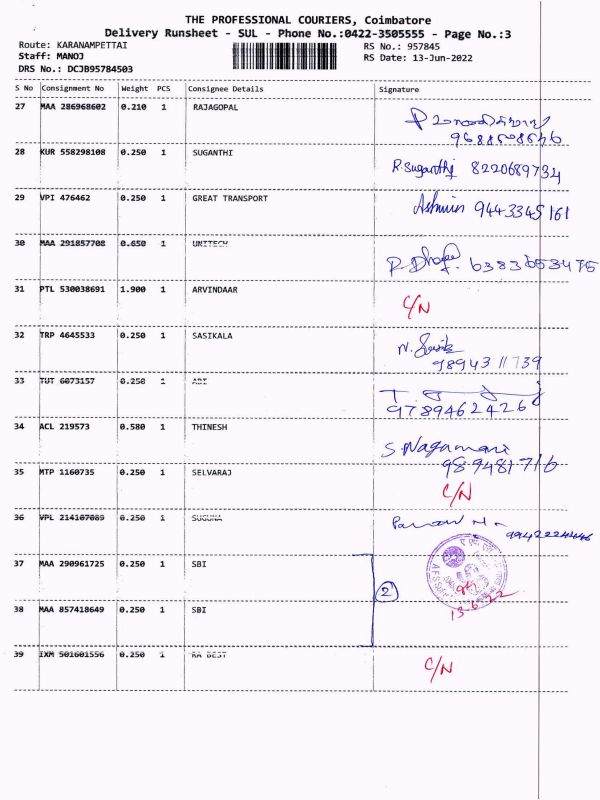 THE PROFESSIONAL COURIERS, Coimbatore
Delivery Runsheet - SUL - Phone No.:0422-3505555 - Page No.:3
Route: KARANAMPETTAI RS No.: 957845
Staff: MANOJ RS Date: 13-Jun-2022
DRS No.: DCJB95784503
S No Consignment No Weight PCS Consignee Details Signature
27 MAA 286968602 0.210 1 RAJAGOPAL
28 KUR 558298108 0.250 1 SUGANTHI R.Suganthi 8220689734
29 VPI 476462 0.250 1 GREAT TRANSPORT Ashwin 9443345161
30 MAA 291857708 0.650 1 UNITECH 6383653475
31 PTL 530038691 1.900 1 ARVINDAAR C/N
32 TRP 4645533 0.250 1 SASIKALA 9894311739
33 TUT 6073157 0.250 1 ABI 9789462426
34 ACL 219573 0.580 1 THINESH S Nagamani 9894817716
35 MTP 1160735 0.250 1 SELVARAJ C/N
36 VPL 214107089 0.250 1 SUGUNA
37 MAA 290961725 0.250 1 SBI
38 MAA 857418649 0.250 1 SBI
2
13-6-22
39 IXM 501601556 0.250 1 RA BEST C/N